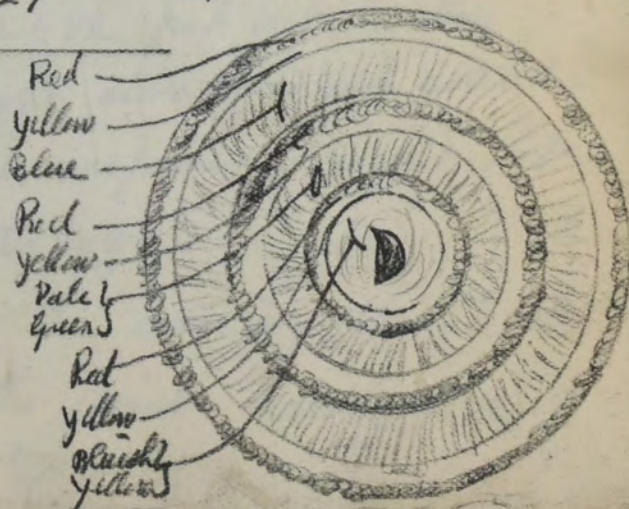 Red
Yellow
Blue
Red
Yellow
Pale
Green
Red
Yellow
Bluish
Yellow